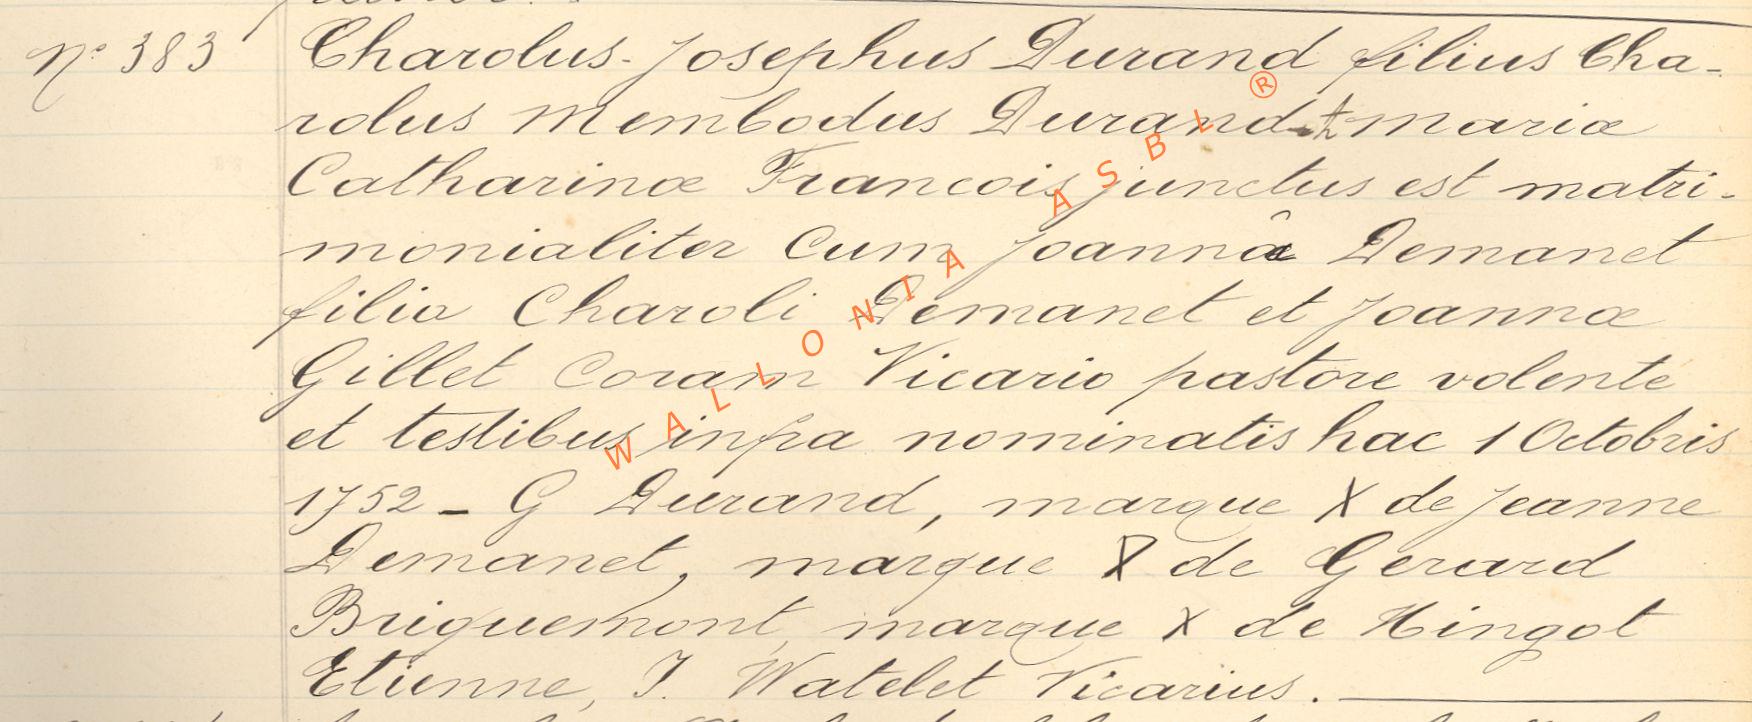 N° 383 Charolus-Josephus Durand filius Cha-
rolus Membodus Durand et Mariæ
Catharinæ Francois junctus est matri-
monialiter cum Joannâ Demanet
filia Charoli Demanet et Joannæ
Gillet Coram Vicario pastore volente
et testibus infra nominatis hac 1 Octobris
1752 - G Durand, marque X de Jeanne
Demanet, marque X de Gerard
Briquemont, marque X de Hingot
Etienne, J. Watelet Vicarius.
WALLONIA ASBL ®